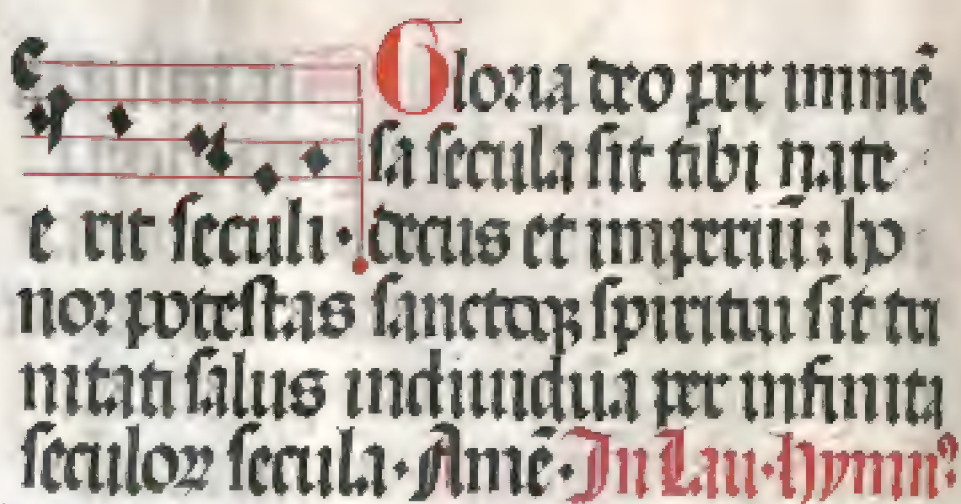 Gloria deo per immē
sa secula sit tibi nate
e rit seculi · decus et imperiū : ho
nor potestas sanctoqꝫ spiritui sit tri
nitati salus indiuidua per infinita
seculoꝝ secula · Amē · In Lau · Hymnꝰ